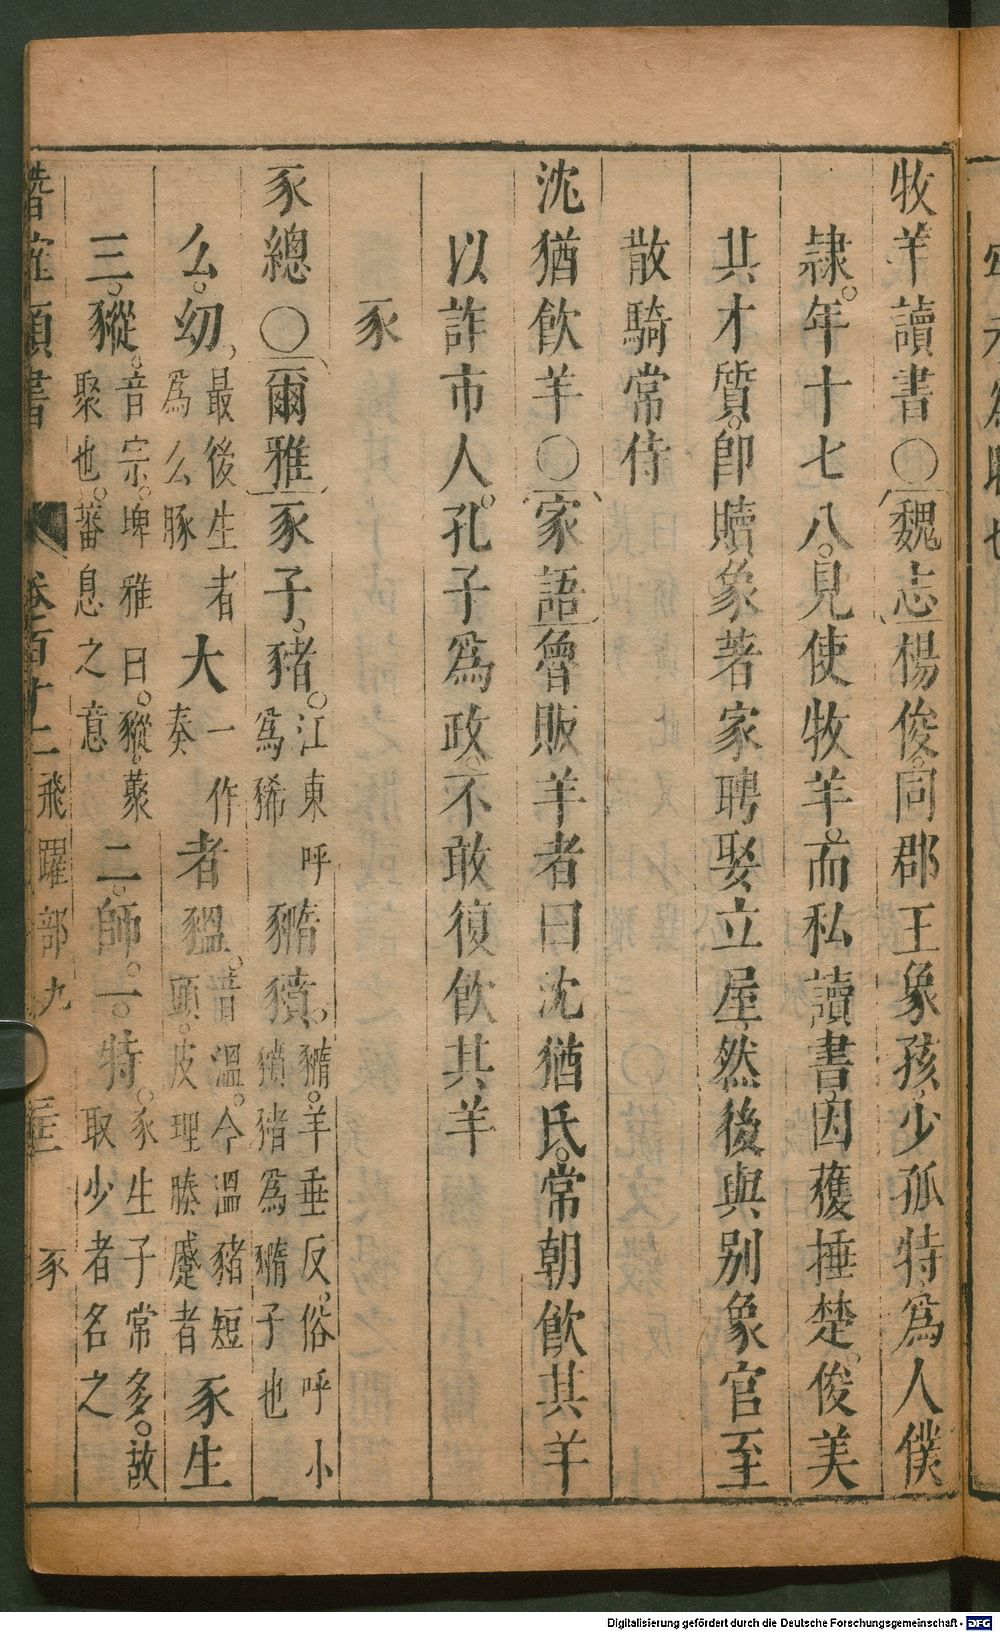 牧羊讀書〇魏志楊俊同郡王象孩少孤特為人僕
隷年十七八見使牧羊而私讀書因獲捶楚俊美
其才質卽贖象著家聘娶立屋然後與別象官至
散騎常侍
沈猶飲羊〇家語魯販羊者曰沈猶氏常朝飲其羊
以詐市人孔子為政不敢復飲其羊
豕
豕總〇爾雅豕子豬江東呼為豨豶豮豶羊垂反俗呼小豶豬為豶子也
么幼最後生者為么豚大一作奏者豱音溫今溫豬短頭皮理腠蹙者豕生
三豵音宗埤雅曰豵藂聚也蕃息之意二師一特豕生子常多故取少者名之
類書 卷百十二 飛躍部九 豕
Digitalisierung gefördert durch die Deutsche Forschungsgemeinschaft - DFG